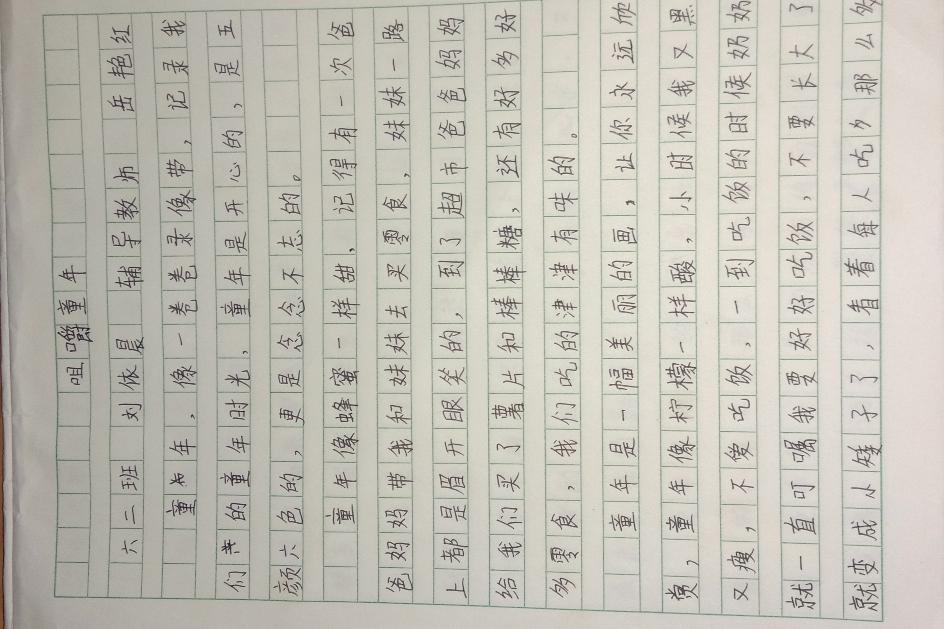 咀嚼童年
六二班 刘依晨 辅导教师 岳艳红
童年,像一卷卷录像带,记录我
们的童年时光,童年是开心的,是五
颜六色的,更是念念不忘的。
童年像蜂蜜一样甜,记得有一次爸
爸妈妈带我和妹妹去买零食,妹妹一路
上都是眉开眼笑的,到了超市爸爸妈妈
给我们买了薯片和棒棒糖,还有好多好
多零食,我们吃的津津有味的。
童年是一幅美丽的画,让你永远欣
赏,童年像柠檬一样酸,小时候我又黑
又瘦,不爱吃饭,一到吃饭的时候奶奶
就一直叮嘱我要好好吃饭,不要长大了
就变成小矮子了,看着每人吃多那么多